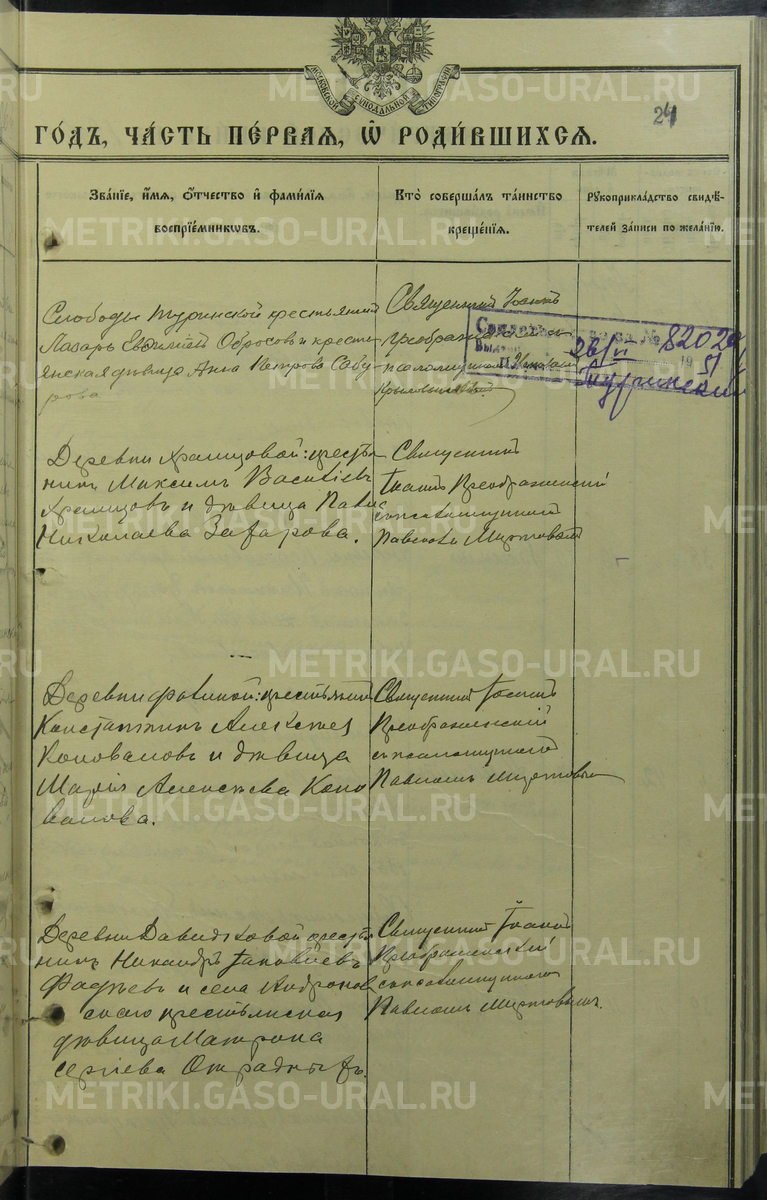 МОСКОВСКОЙ СѴНОДАЛЬНОЙ ТИПОГРАФІИ
24
ГО́ДЪ, ЧА́СТЬ ПЕ́РВАЯ, Ѡ҆ РОДИ́ВШИХСѦ.
Зва́нїе, и҆́мя, ѻ҆́тчество и҆ фами́лїя
воспрїе́мникѡвъ.
Кто̀ соверша́лъ та́инство
креще́нїя.
Рꙋкоприкла́дство свидѣ́-
телей за́писи по жела́нїю.
Слободы Туринской крестьянин
Лазарь Евфимиев Обросов и кресть
янская девица Анна Петрова Сабу
рова
Священник Иоанн
Преображенский с
псаломщиком
№ 82029
26/VI 19 51
Туринский
Деревни Храмцовой: кресть
нинъ Максимъ Васильевъ
Храмцовъ и дѣвица
Николаева Захарова.
Священникъ
Іоаннъ Преображенскій
съ псаломщикомъ
Павломъ
Деревни: крестьянинъ
Константинъ Алексѣев
Коноваловъ и дѣвица
Марія Алексѣева Коно
валова.
Священникъ Іоаннъ
Преображенскій
съ псаломщикомъ
Павломъ
Деревни Давыдковой крестья
нинъ Никандръ Іаковлевъ
Фадѣевъ и села Андронов
скаго крестьянская
дѣвица Матрона
Сергіева
Священникъ Іоаннъ
Преображенскій
съ псаломщикомъ
Павломъ
METRIKI.GASO-URAL.RU